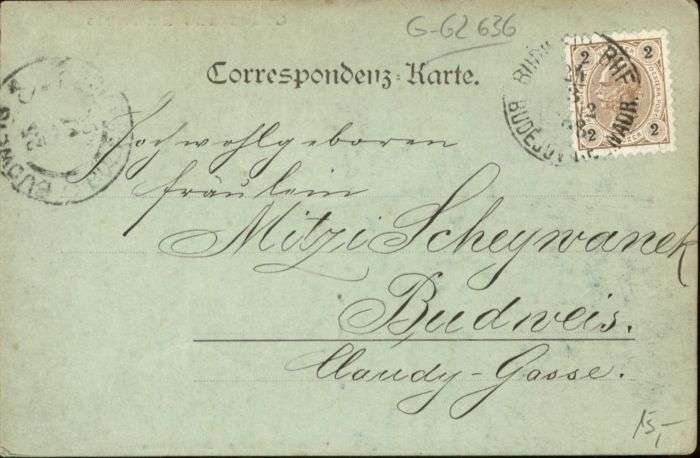 G-62 636
Correspondenz-Karte.
2 2
2 2
BUDĚJOV
BUDWEIS
Hochwohlgeboren
Fräulein
Mitzi Scheywanek
Budweis.
Claudy-Gasse.
15,-